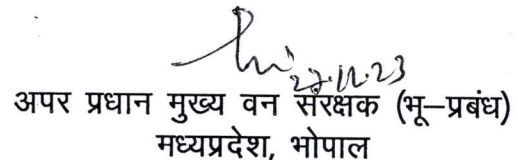 27.11.23
अपर प्रधान मुख्य वन संरक्षक (भू–प्रबंध)
मध्यप्रदेश, भोपाल